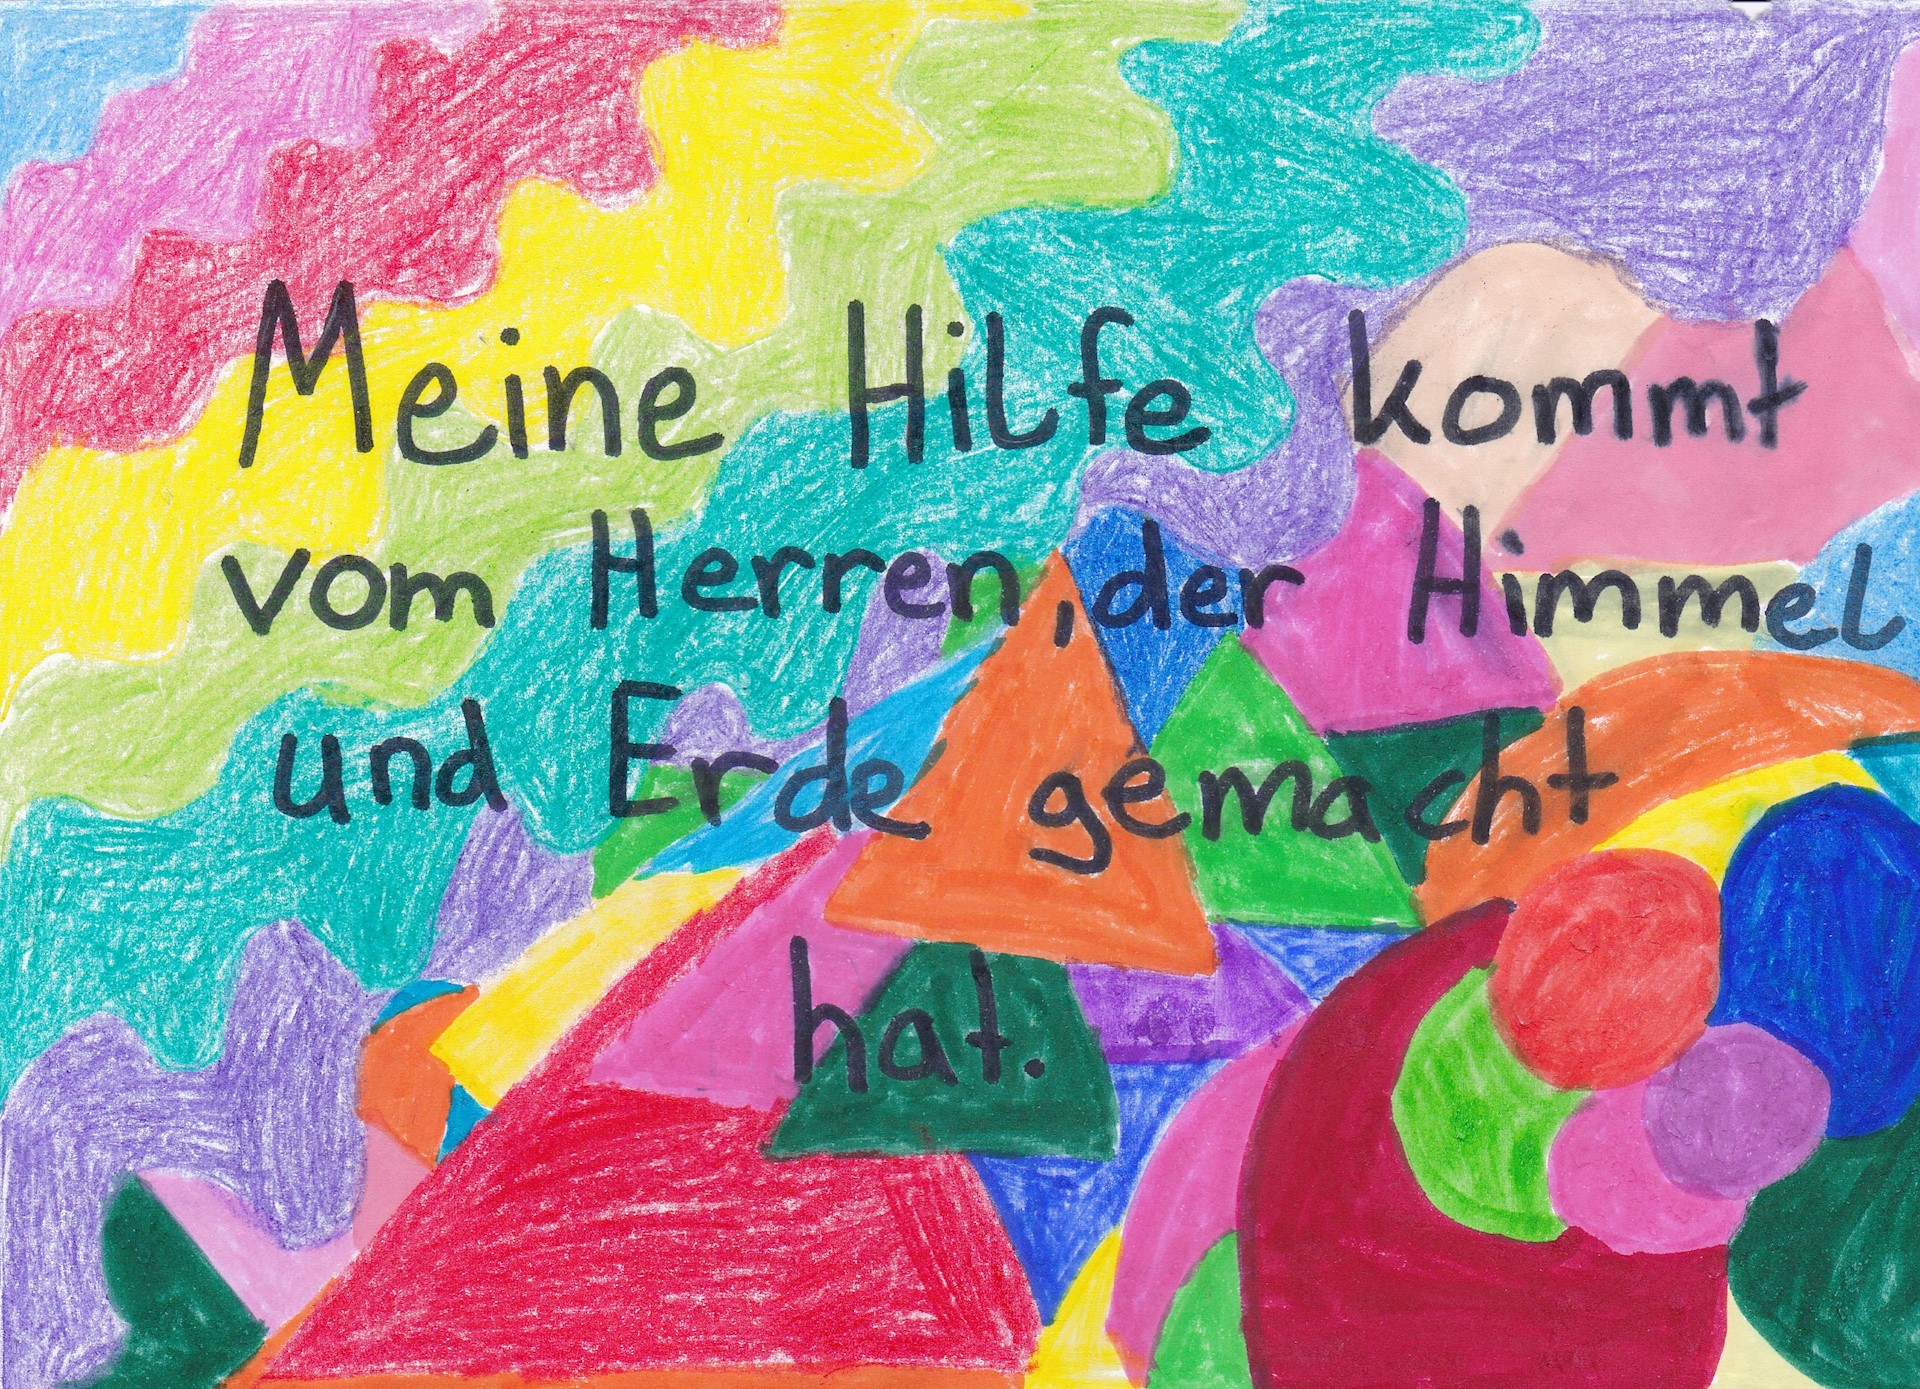 Meine Hilfe kommt
vom Herren, der Himmel
und Erde gemacht
hat.